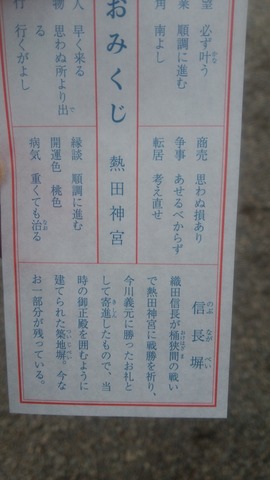 望 必ず叶う
かな
業 順調に進む
角 南よし
商売 思わぬ損あり
争事 あせるべからず
転居 考え直せ
おみくじ 熱田神宮
人 早く来る
物 思わぬ所より出
で
る
行 行くがよし
縁談 順調に進む
開運色 桃色
病気 重くても治る
なお
信長塀
のぶながべい
織田信長が桶狭間の戦い
おけはざま
で熱田神宮に戦勝を祈り、
今川義元に勝ったお礼と
して寄進したもので、当
きしん
時の御正殿を囲むように
建てられた築地塀。今な
ついじべい
お一部分が残っている。